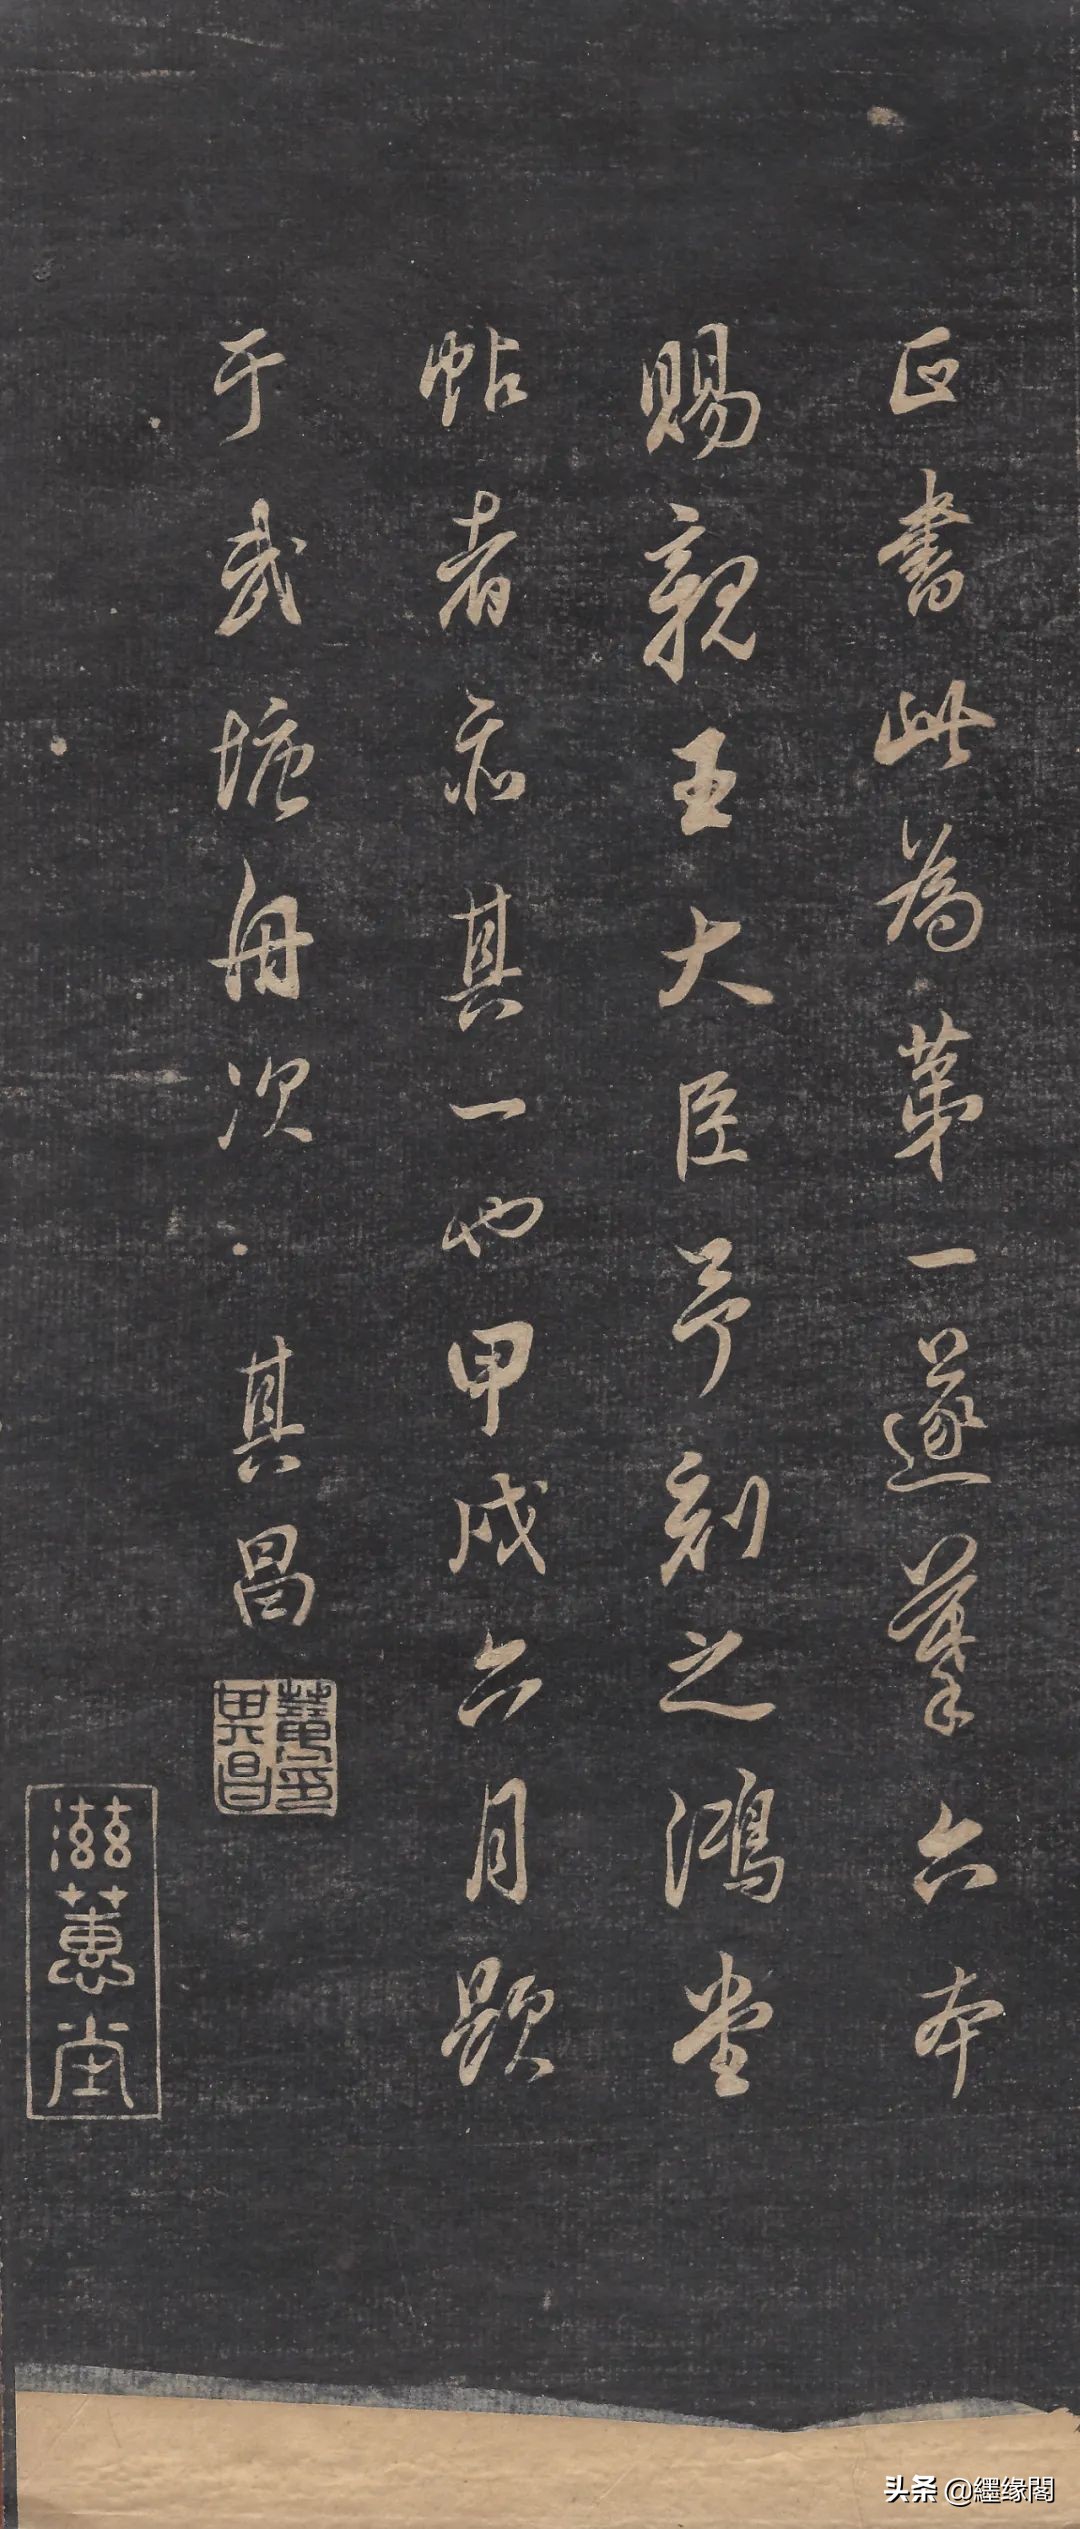 正書此為第一遂摹六本
賜親王大臣予刻之鴻堂
帖者亦其一也甲戌六月題
于武塘舟次 其昌
董其昌印
滋蕙堂
头条 @纆缘閣